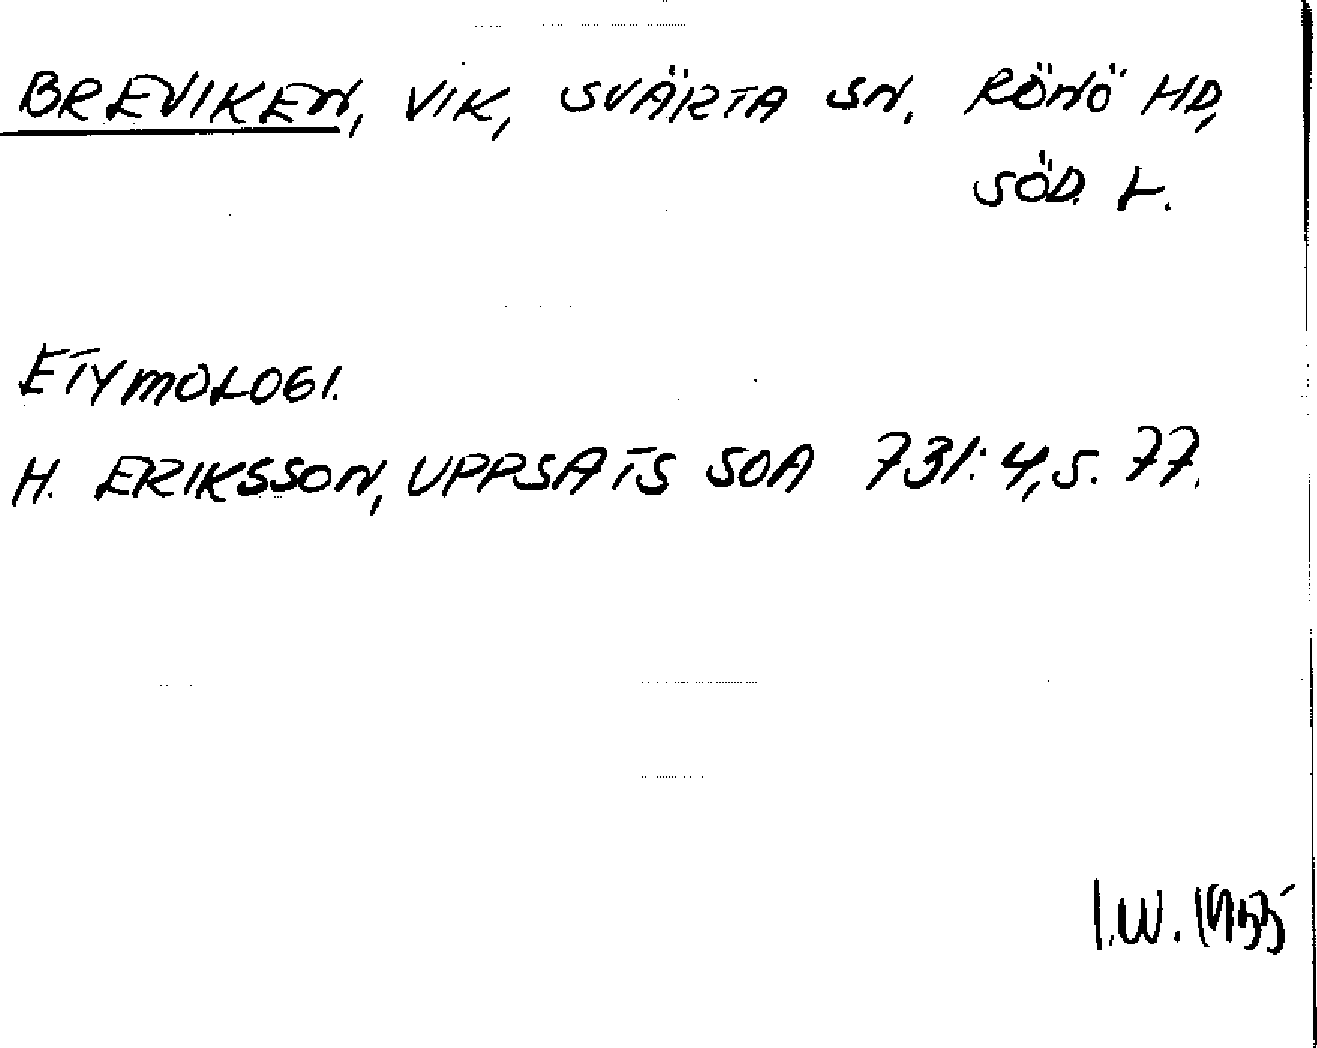 BREVIKEN, VIK, SVÄRTA SN. RÖNÖ HD,
SÖD. L.
ETYMOLOGI.
H. ERIKSSON, UPPSATS SOA 731:4, S. 77.
I.W. 1955